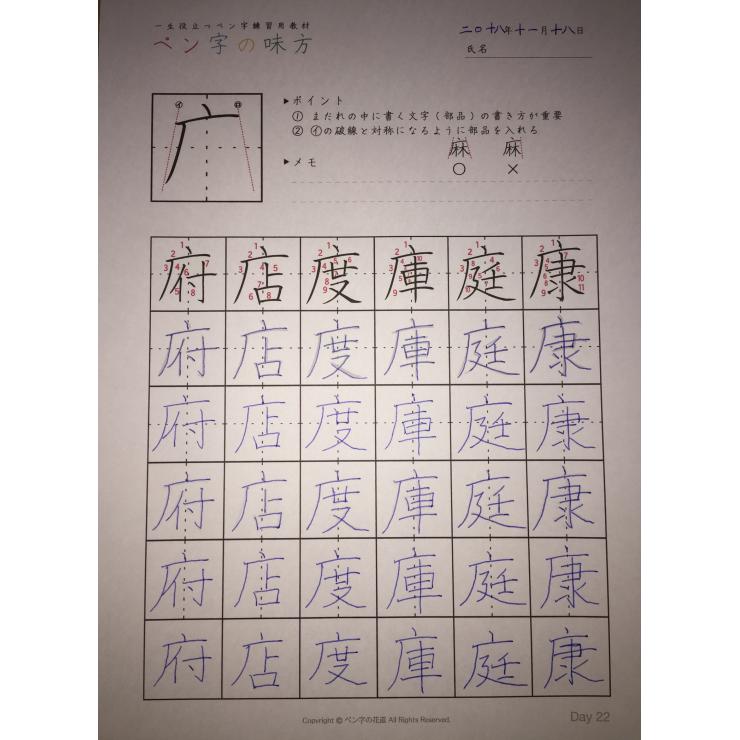 一生役立つペン字練習用教材
ペン字の味方
二〇十八年十一月十八日
氏名
イ ロ
▶ポイント
① まだれの中に書く文字(部品)の書き方が重要
② ㋑の破線と対称になるように部品を入れる
麻 麻
○ ×
▶メモ
府 店 度 庫 庭 康
府 店 度 庫 庭 康
府 店 度 庫 庭 康
府 店 度 庫 庭 康
府 店 度 庫 庭 康
府 店 度 庫 庭 康
Copyright © ペン字の花道 All Rights Reserved.
Day 22